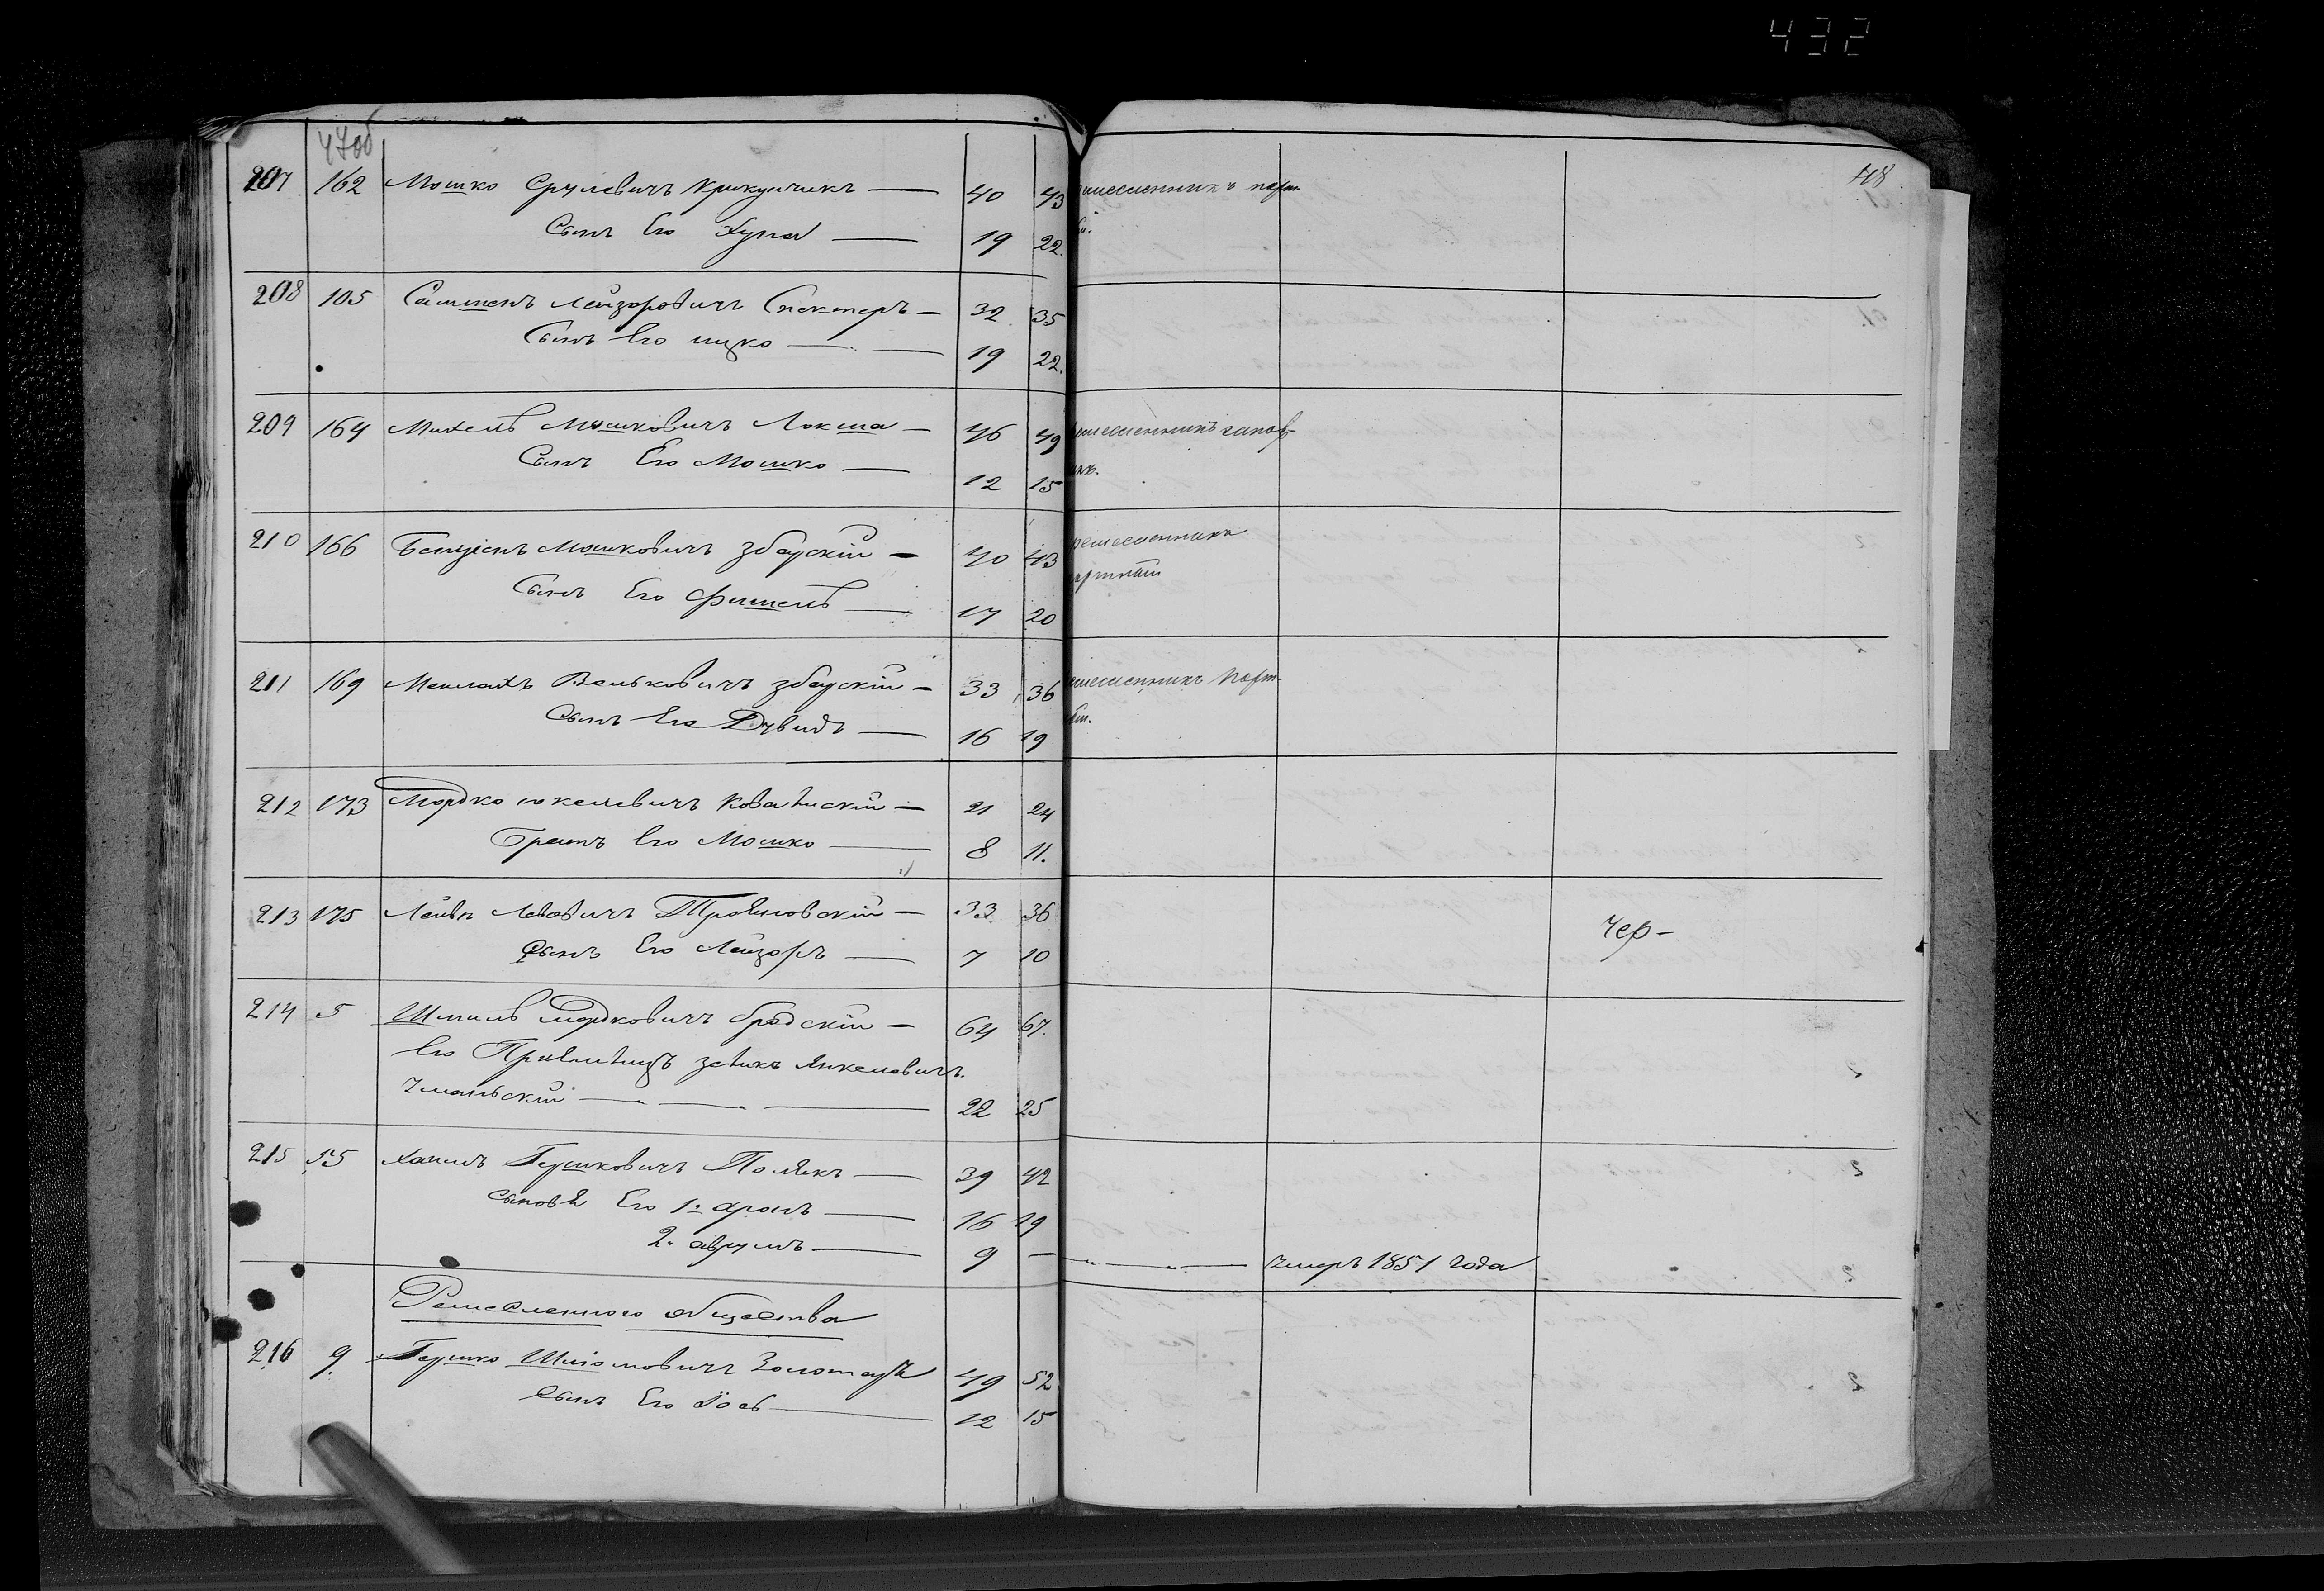 432
47об
48
207 162 Мошко Срулевичъ Крикунчикъ — 40 43 ремесленникъ порт-
Сынъ Его Хуна — 19 22. ной.
208 105 Лейзоровичъ Спекторъ — 32 35
Сынъ Его Ицко — 19 22.
209 164 Михель Мошковичъ Локша — 46 49
Сынъ Его Мошко — 12 15
210 166 Бенціонъ Мошковичъ Збарскій — 40 43 ремесленникъ
Сынъ Его Фишель — 17 20 портной
211 169 Менлахъ Вольковичъ Збарскій — 33 36 ремесленникъ порт-
Сынъ Его Дувидъ — 16 19 ной.
212 173 Мордко Іокелевичъ — 21 24
Братъ Его Мошко — 8 11.
213 175 Лейба Лебовичъ Трояновскій — 33 36 Чер-
Сынъ Его Лейзоръ — 7 10
214 5 Шмиль Мордковичъ Бродскій — 64 67.
Его Янкелевичъ
Уманьскій — 22 25
215 55 Хаимъ Гершковичъ Полякъ — 39 42
Сыновья Его 1. Аронъ — 16 19
2. Аврумъ — 9 — умеръ 1851 года
Ремесленного общества
216 9. Гершко Шліомовичъ 49 52
Сынъ Его Іосъ — 12 15